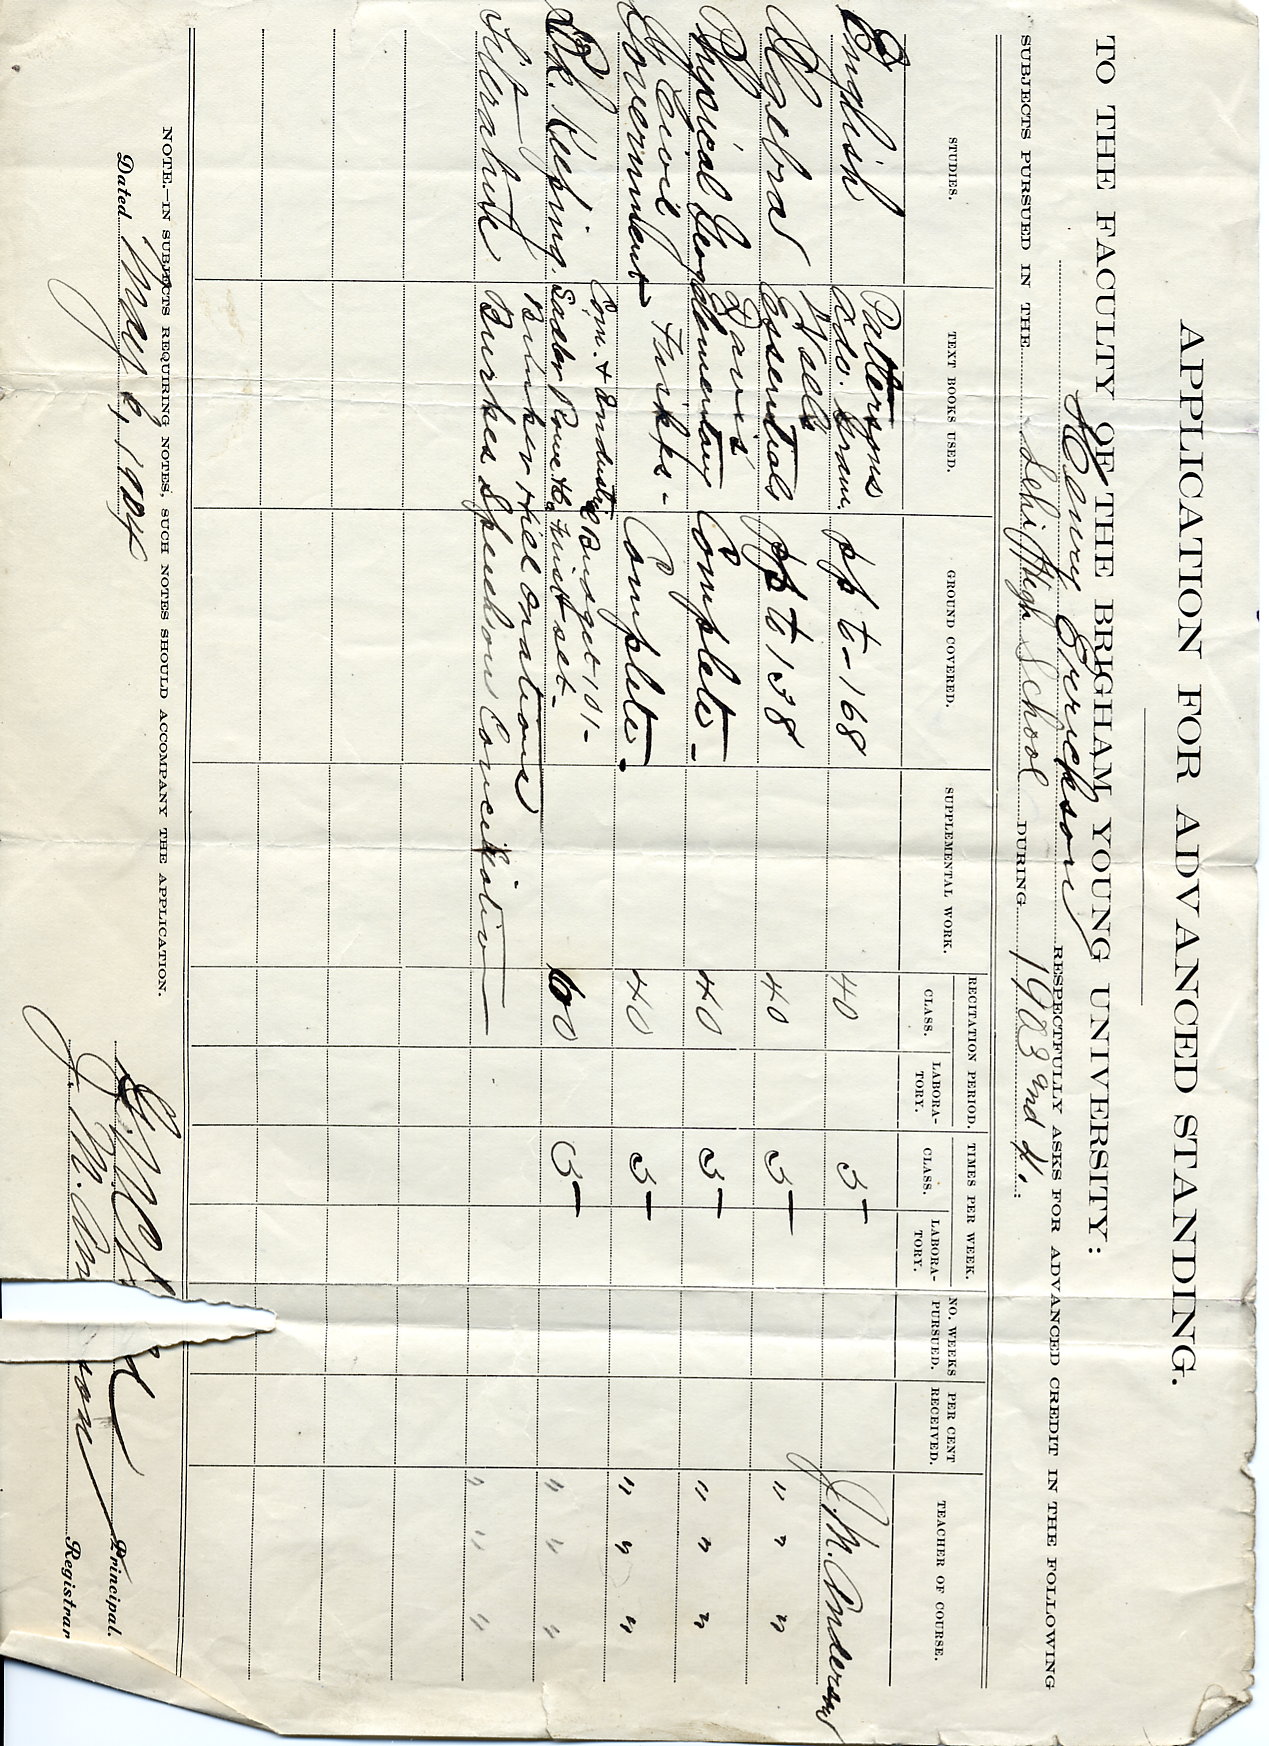 APPLICATION FOR ADVANCED STANDING.
TO THE FACULTY OF THE BRIGHAM YOUNG UNIVERSITY:
Henry Erickson RESPECTFULLY ASKS FOR ADVANCED CREDIT IN THE FOLLOWING
SUBJECTS PURSUED IN THE Lehi High School DURING 1903 and 4.
STUDIES. TEXT BOOKS USED. GROUND COVERED. SUPPLEMENTAL WORK. RECITATION PERIOD. CLASS. LABORATORY. TIMES PER WEEK. CLASS. LABORATORY. NO. WEEKS PURSUED. PER CENT RECEIVED. TEACHER OF COURSE.
English Pattersons Adv. Gram. pp to 168 40 5 J. M. Anderson
Algebra Wells Essentials pp to 138 40 5 " " "
Physical Geog Davis' Elementary Complete 40 5 " " "
Civil Government Fiskes Complete 40 5 " " "
Bk. Keeping. Sadler Rowe Com. & Industrial Budget 101 First set 60 5 " " "
Literature Bunker Hill Orations Burkes Speech on Conciliation " " "
NOTE.—IN SUBJECTS REQUIRING NOTES, SUCH NOTES SHOULD ACCOMPANY THE APPLICATION.
Dated May 6, 1904
Principal.
J. M. An son Registrar